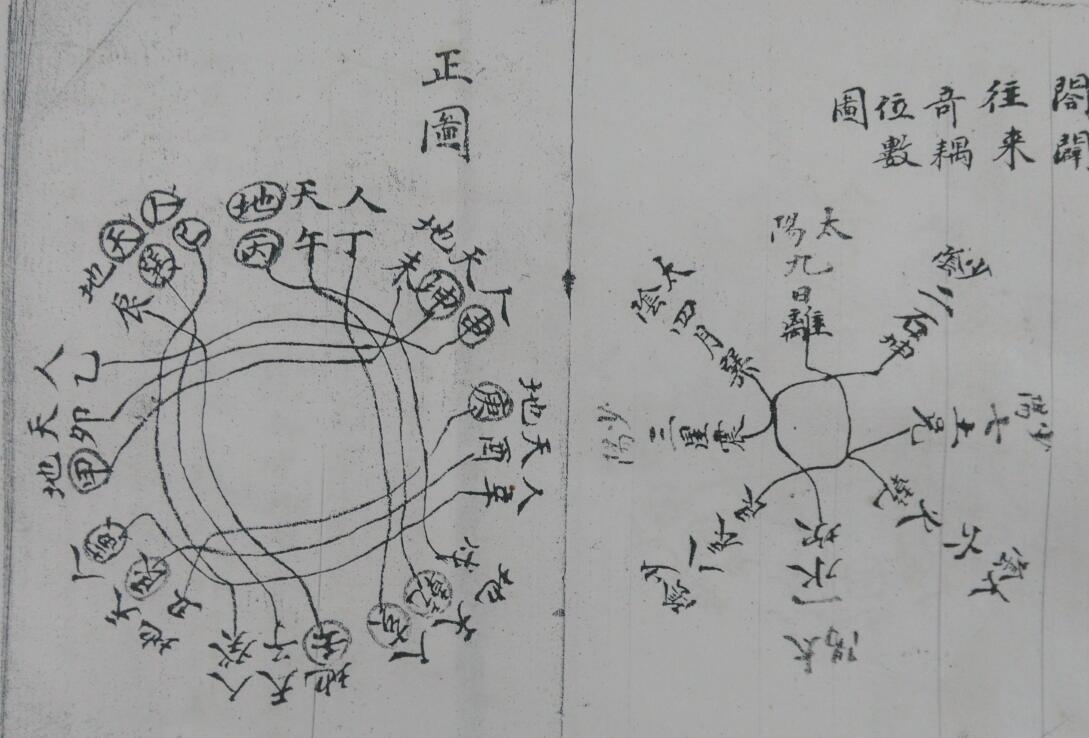 閤闢
往来
奇耦
位數
圖
太
陽九日離
二石坤
少陽
七土兌
太
六火乾
太陽
一水坎
少陽
三星震
太
四月巽
正圖
地天人
丙午丁
地天人
未坤申
地天人
庚酉辛
地天人
戌乾亥
地天人
壬子癸
地天人
丑艮寅
地天人
甲卯乙
地天人
辰巽巳